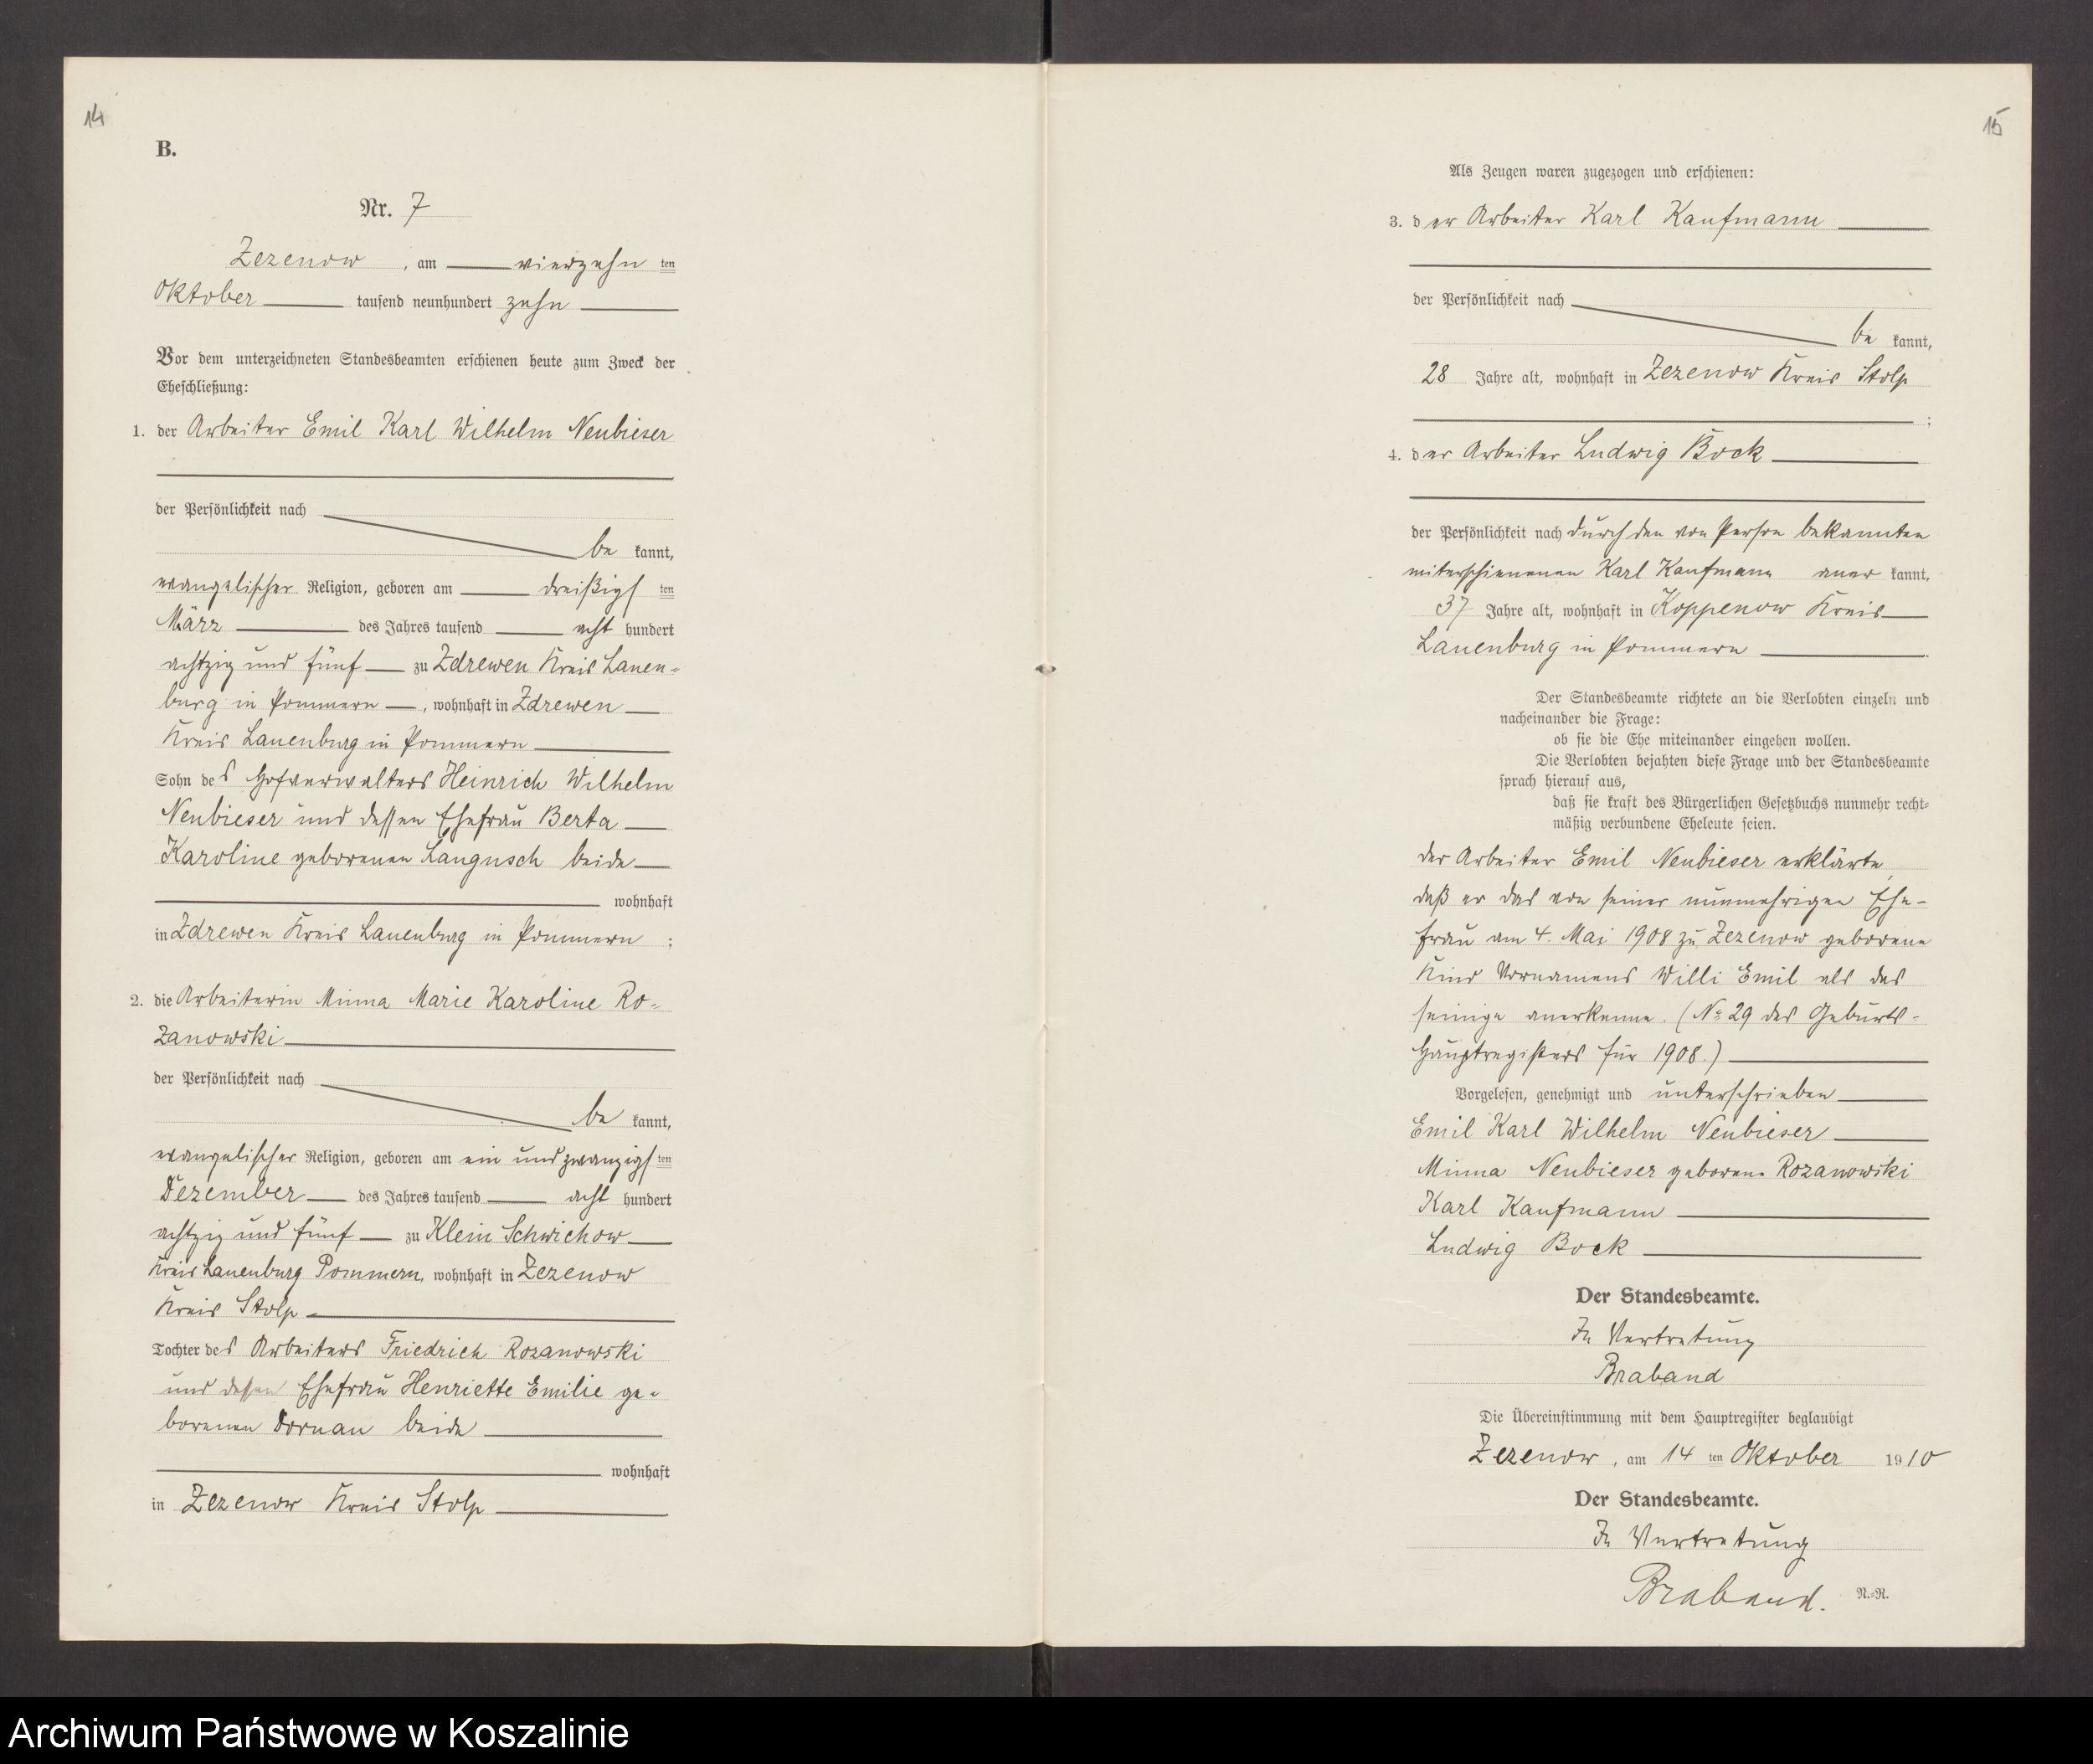 14
B.
Nr. 7
Zezenow, am vierzehnten
Oktober tausend neunhundert zehn
Vor dem unterzeichneten Standesbeamten erschienen heute zum Zweck der
Eheschließung:
1. der Arbeiter Emil Karl Wilhelm Neubieser
der Persönlichkeit nach
be kannt,
evangelischer Religion, geboren am dreißigsten
März des Jahres tausend acht hundert
achtzig und fünf zu Zdrewen Kreis Lauen-
burg in Pommern, wohnhaft in Zdrewen
Kreis Lauenburg in Pommern
Sohn des Hofverwalters Heinrich Wilhelm
Neubieser und dessen Ehefrau Berta
Karoline geborenen Langusch beide
wohnhaft
in Zdrewen Kreis Lauenburg in Pommern ;
2. die Arbeiterin Minna Marie Karoline Ro-
zanowski
der Persönlichkeit nach
be kannt,
evangelischer Religion, geboren am ein und zwanzigsten
Dezember des Jahres tausend acht hundert
achtzig und fünf zu Klein Schwichow
Kreis Lauenburg Pommern, wohnhaft in Zezenow
Kreis Stolp
Tochter des Arbeiters Friedrich Rozanowski
und dessen Ehefrau Henriette Emilie ge-
borenen Dornau beide
wohnhaft
in Zezenow Kreis Stolp
15
Als Zeugen waren zugezogen und erschienen:
3. der Arbeiter Karl Kaufmann
der Persönlichkeit nach
be kannt,
28 Jahre alt, wohnhaft in Zezenow Kreis Stolp
;
4. der Arbeiter Ludwig Bock
der Persönlichkeit nach durch den von Person bekannten
miterschienenen Karl Kaufmann aner kannt,
37 Jahre alt, wohnhaft in Koppenow Kreis
Lauenburg in Pommern.
Der Standesbeamte richtete an die Verlobten einzeln und
nacheinander die Frage:
ob sie die Ehe miteinander eingehen wollen.
Die Verlobten bejahten diese Frage und der Standesbeamte
sprach hierauf aus,
daß sie kraft des Bürgerlichen Gesetzbuchs nunmehr recht-
mäßig verbundene Eheleute seien.
Der Arbeiter Emil Neubieser erklärte,
daß er das von seiner nunmehrigen Ehe-
frau am 4. Mai 1908 zu Zezenow geborene
Kind Vornamens Willi Emil als das
seinige anerkenne. (No 29 des Geburts-
Hauptregisters für 1908.)
Vorgelesen, genehmigt und unterschrieben
Emil Karl Wilhelm Neubieser
Minna Neubieser geborene Rozanowski
Karl Kaufmann
Ludwig Bock
Der Standesbeamte.
In Vertretung
Braband
Die Übereinstimmung mit dem Hauptregister beglaubigt
Zezenow, am 14 ten Oktober 1910
Der Standesbeamte.
In Vertretung
Braband.
N.-R.
Archiwum Państwowe w Koszalinie